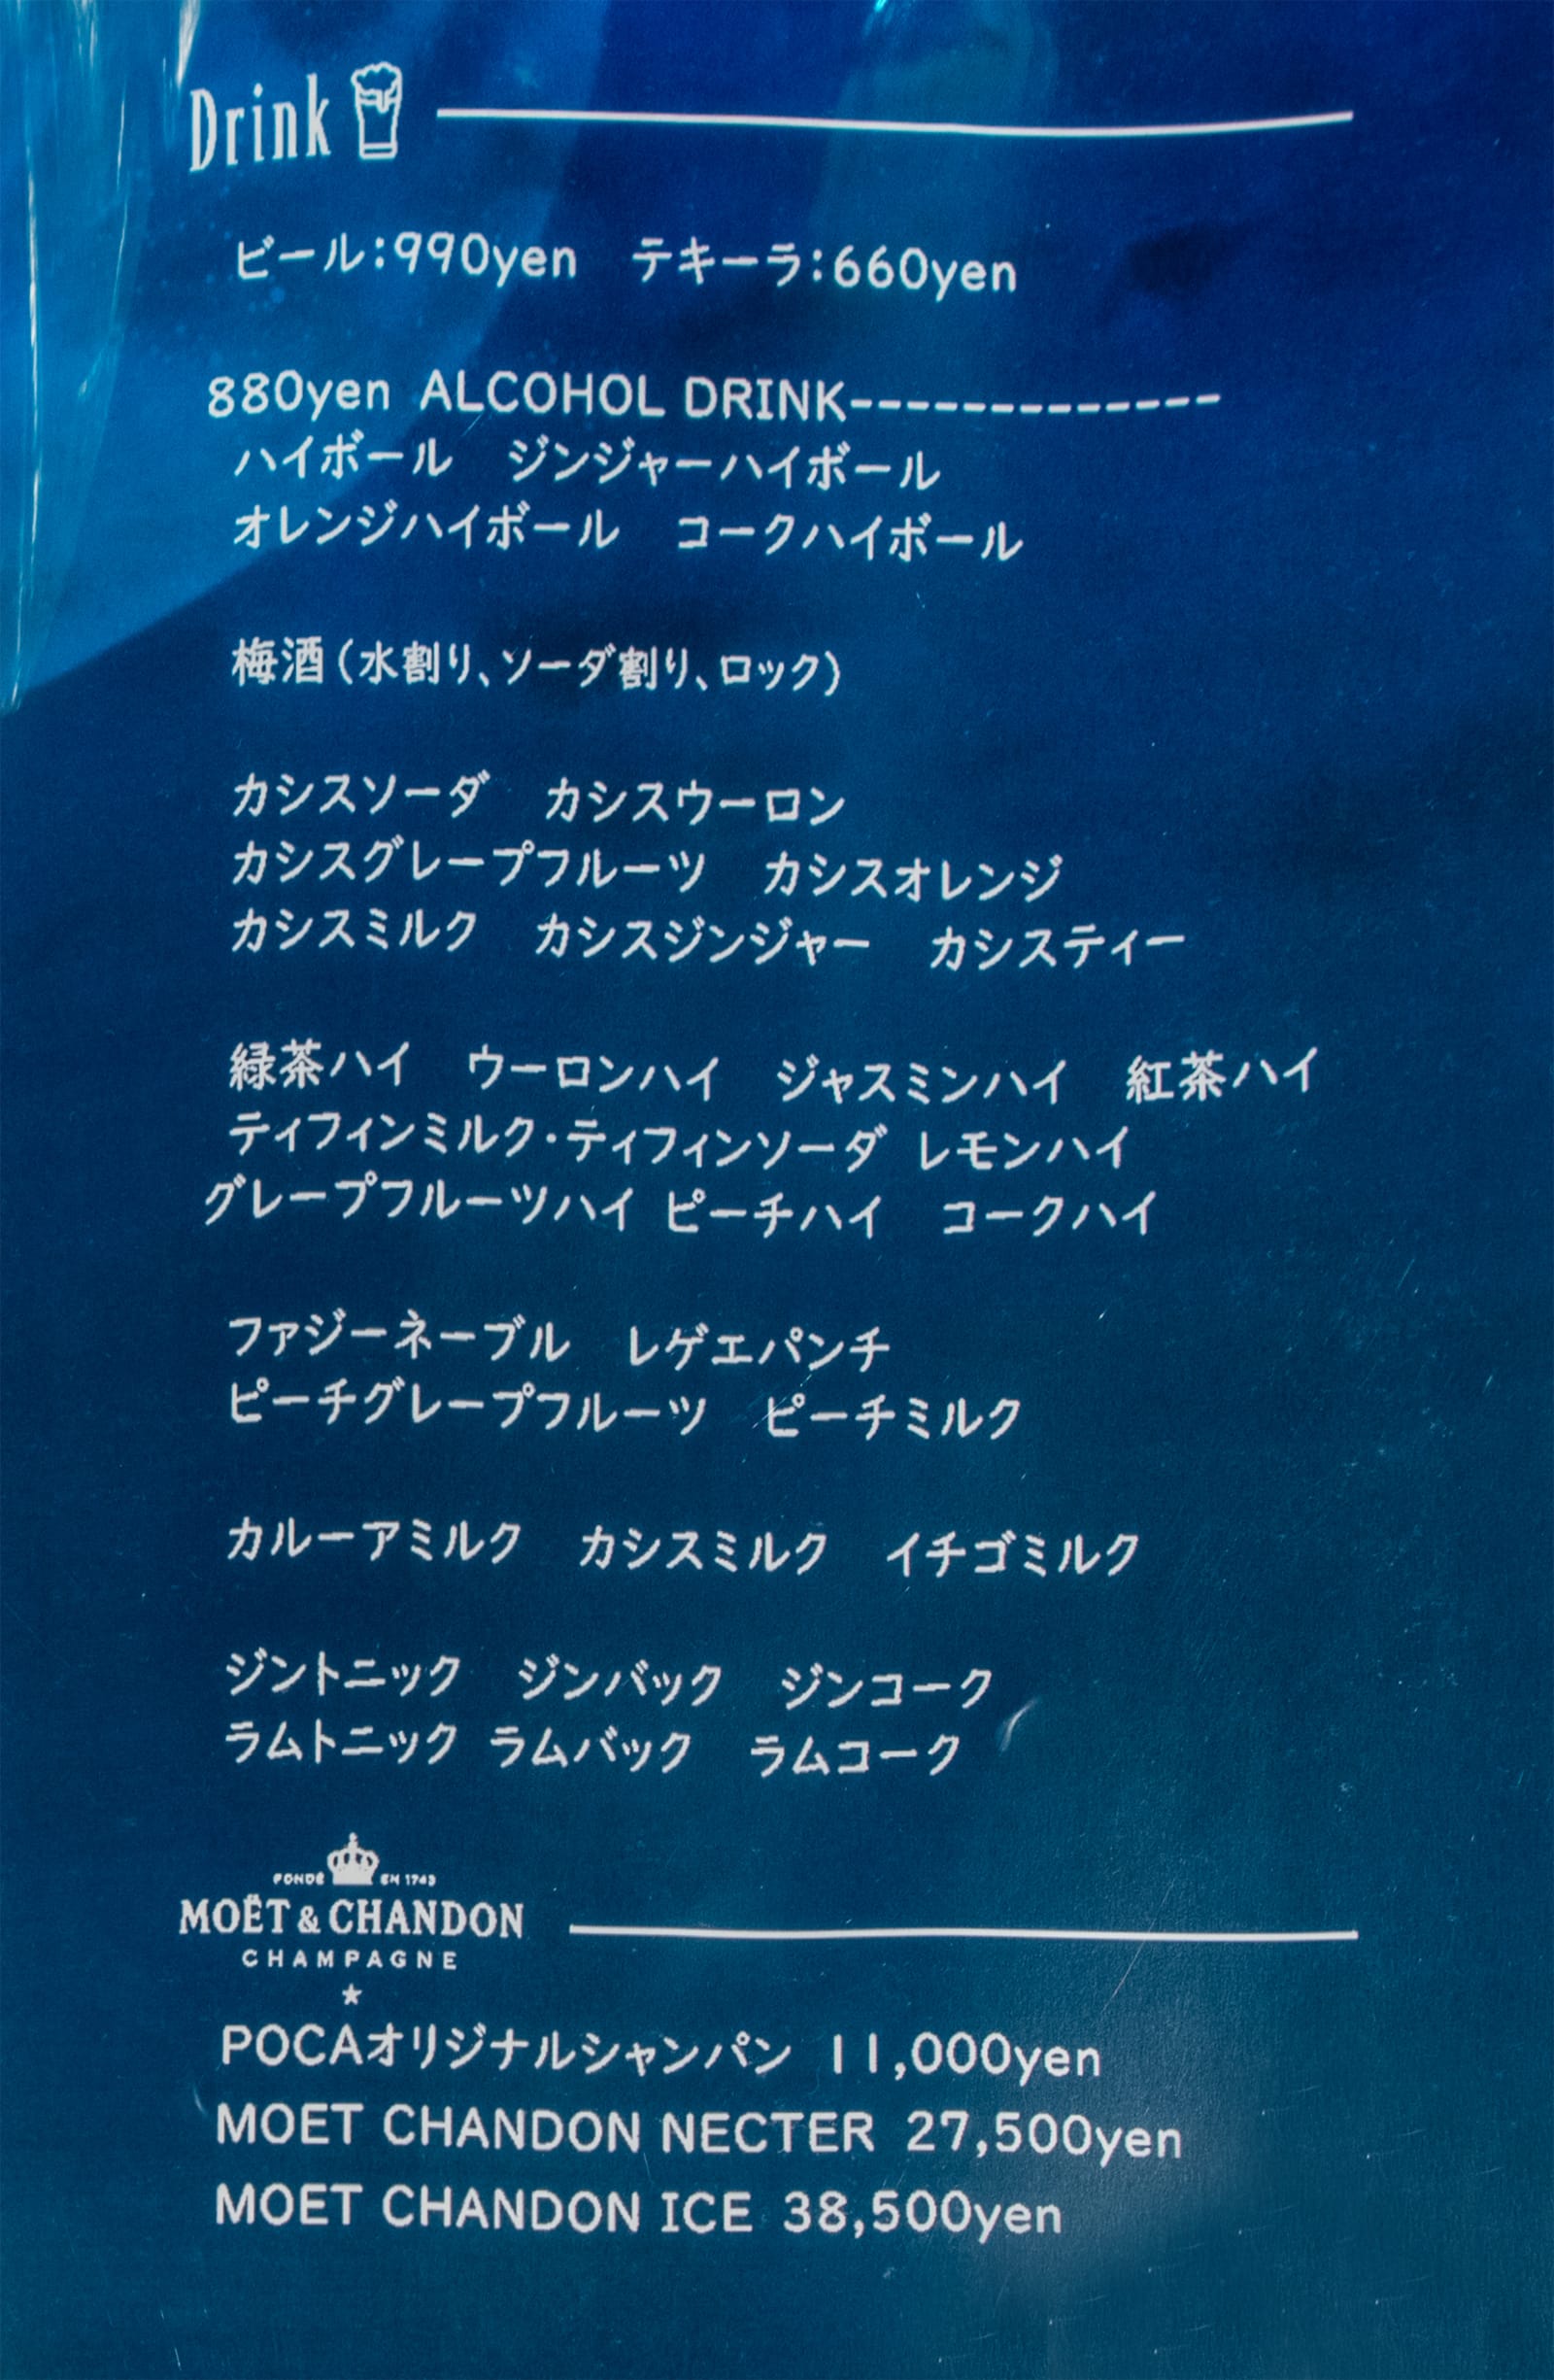 Drink
ビール:990yen　テキーラ:660yen
880yen ALCOHOL DRINK-------------
ハイボール　ジンジャーハイボール
オレンジハイボール　コークハイボール
梅酒(水割り、ソーダ割り、ロック)
カシスソーダ　カシスウーロン
カシスグレープフルーツ　カシスオレンジ
カシスミルク　カシスジンジャー　カシスティー
緑茶ハイ　ウーロンハイ　ジャスミンハイ　紅茶ハイ
ティフィンミルク・ティフィンソーダ レモンハイ
グレープフルーツハイ ピーチハイ　コークハイ
ファジーネーブル　レゲエパンチ
ピーチグレープフルーツ　ピーチミルク
カルーアミルク　カシスミルク　イチゴミルク
ジントニック　ジンバック　ジンコーク
ラムトニック ラムバック　ラムコーク
FONDÉ EN 1743
MOËT & CHANDON
CHAMPAGNE
POCAオリジナルシャンパン 11,000yen
MOET CHANDON NECTER 27,500yen
MOET CHANDON ICE 38,500yen